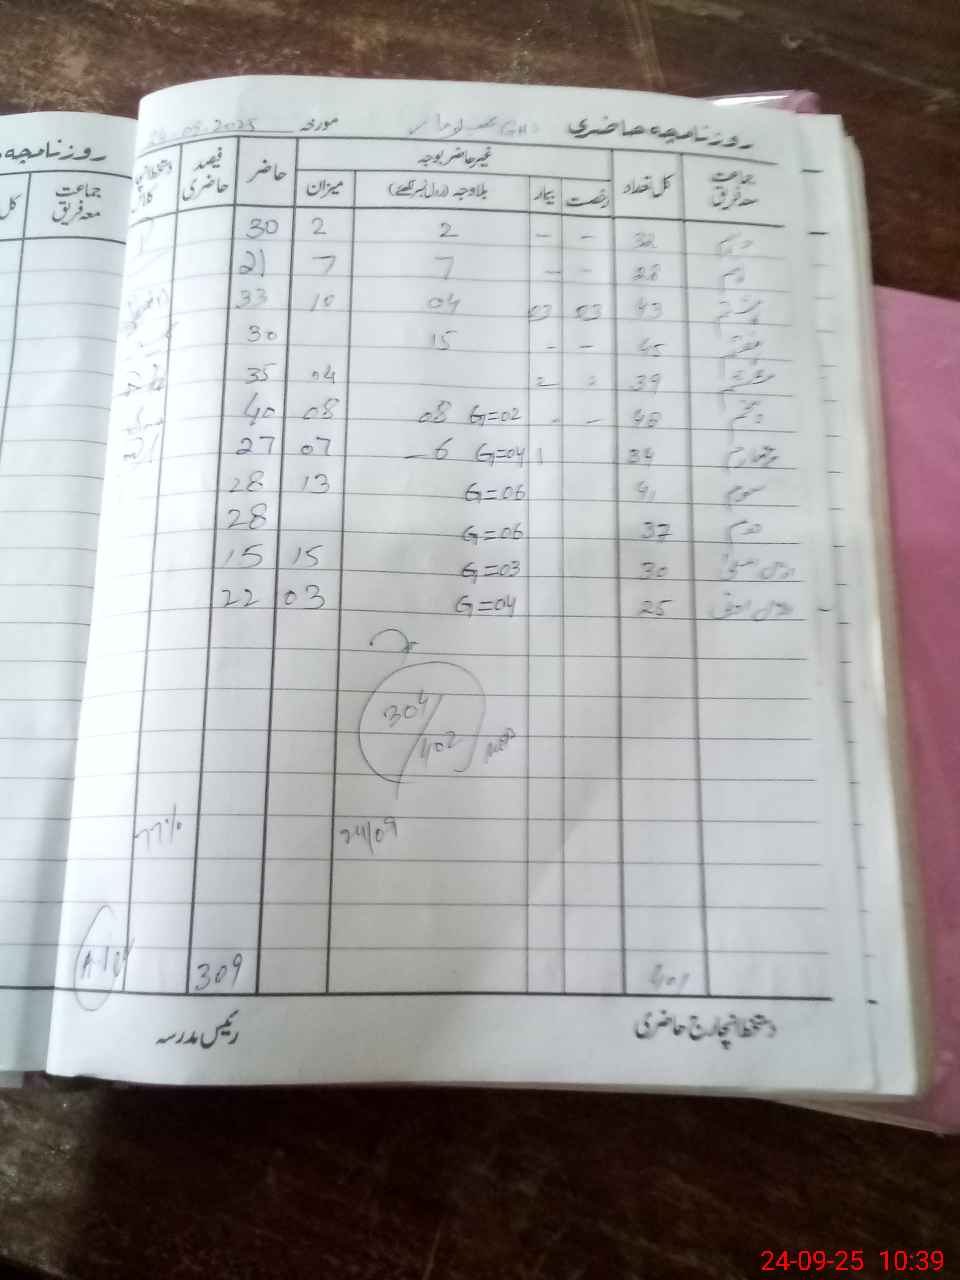 روزنامچہ حاضری GHS مورخہ 24.09.2025
جماعت معہ فریق کل تعداد غیر حاضر بوجہ حاضر فیصد حاضری
رخصت بیمار بلاوجہ (رول نمبر لکھئے) میزان
دہم 32 - - 2 2 30
نہم 28 - - 7 7 21
ہشتم 43 03 03 04 10 33
ہفتم 45 - - 15 30
ششم 39 = = 04 35
پنجم 48 - - 08 G=02 08 40
چہارم 34 1 6 G=04 07 27
سوم 41 G=06 13 28
دوم 37 G=06 28
اول اعلیٰ 30 G=03 15 15
اول ادنی 25 G=04 03 22
304/402
24/09 77%
401 309
دستخط انچارج حاضری رئیس مدرسہ
روزنامچہ
جماعت معہ فریق کل
24-09-25 10:39